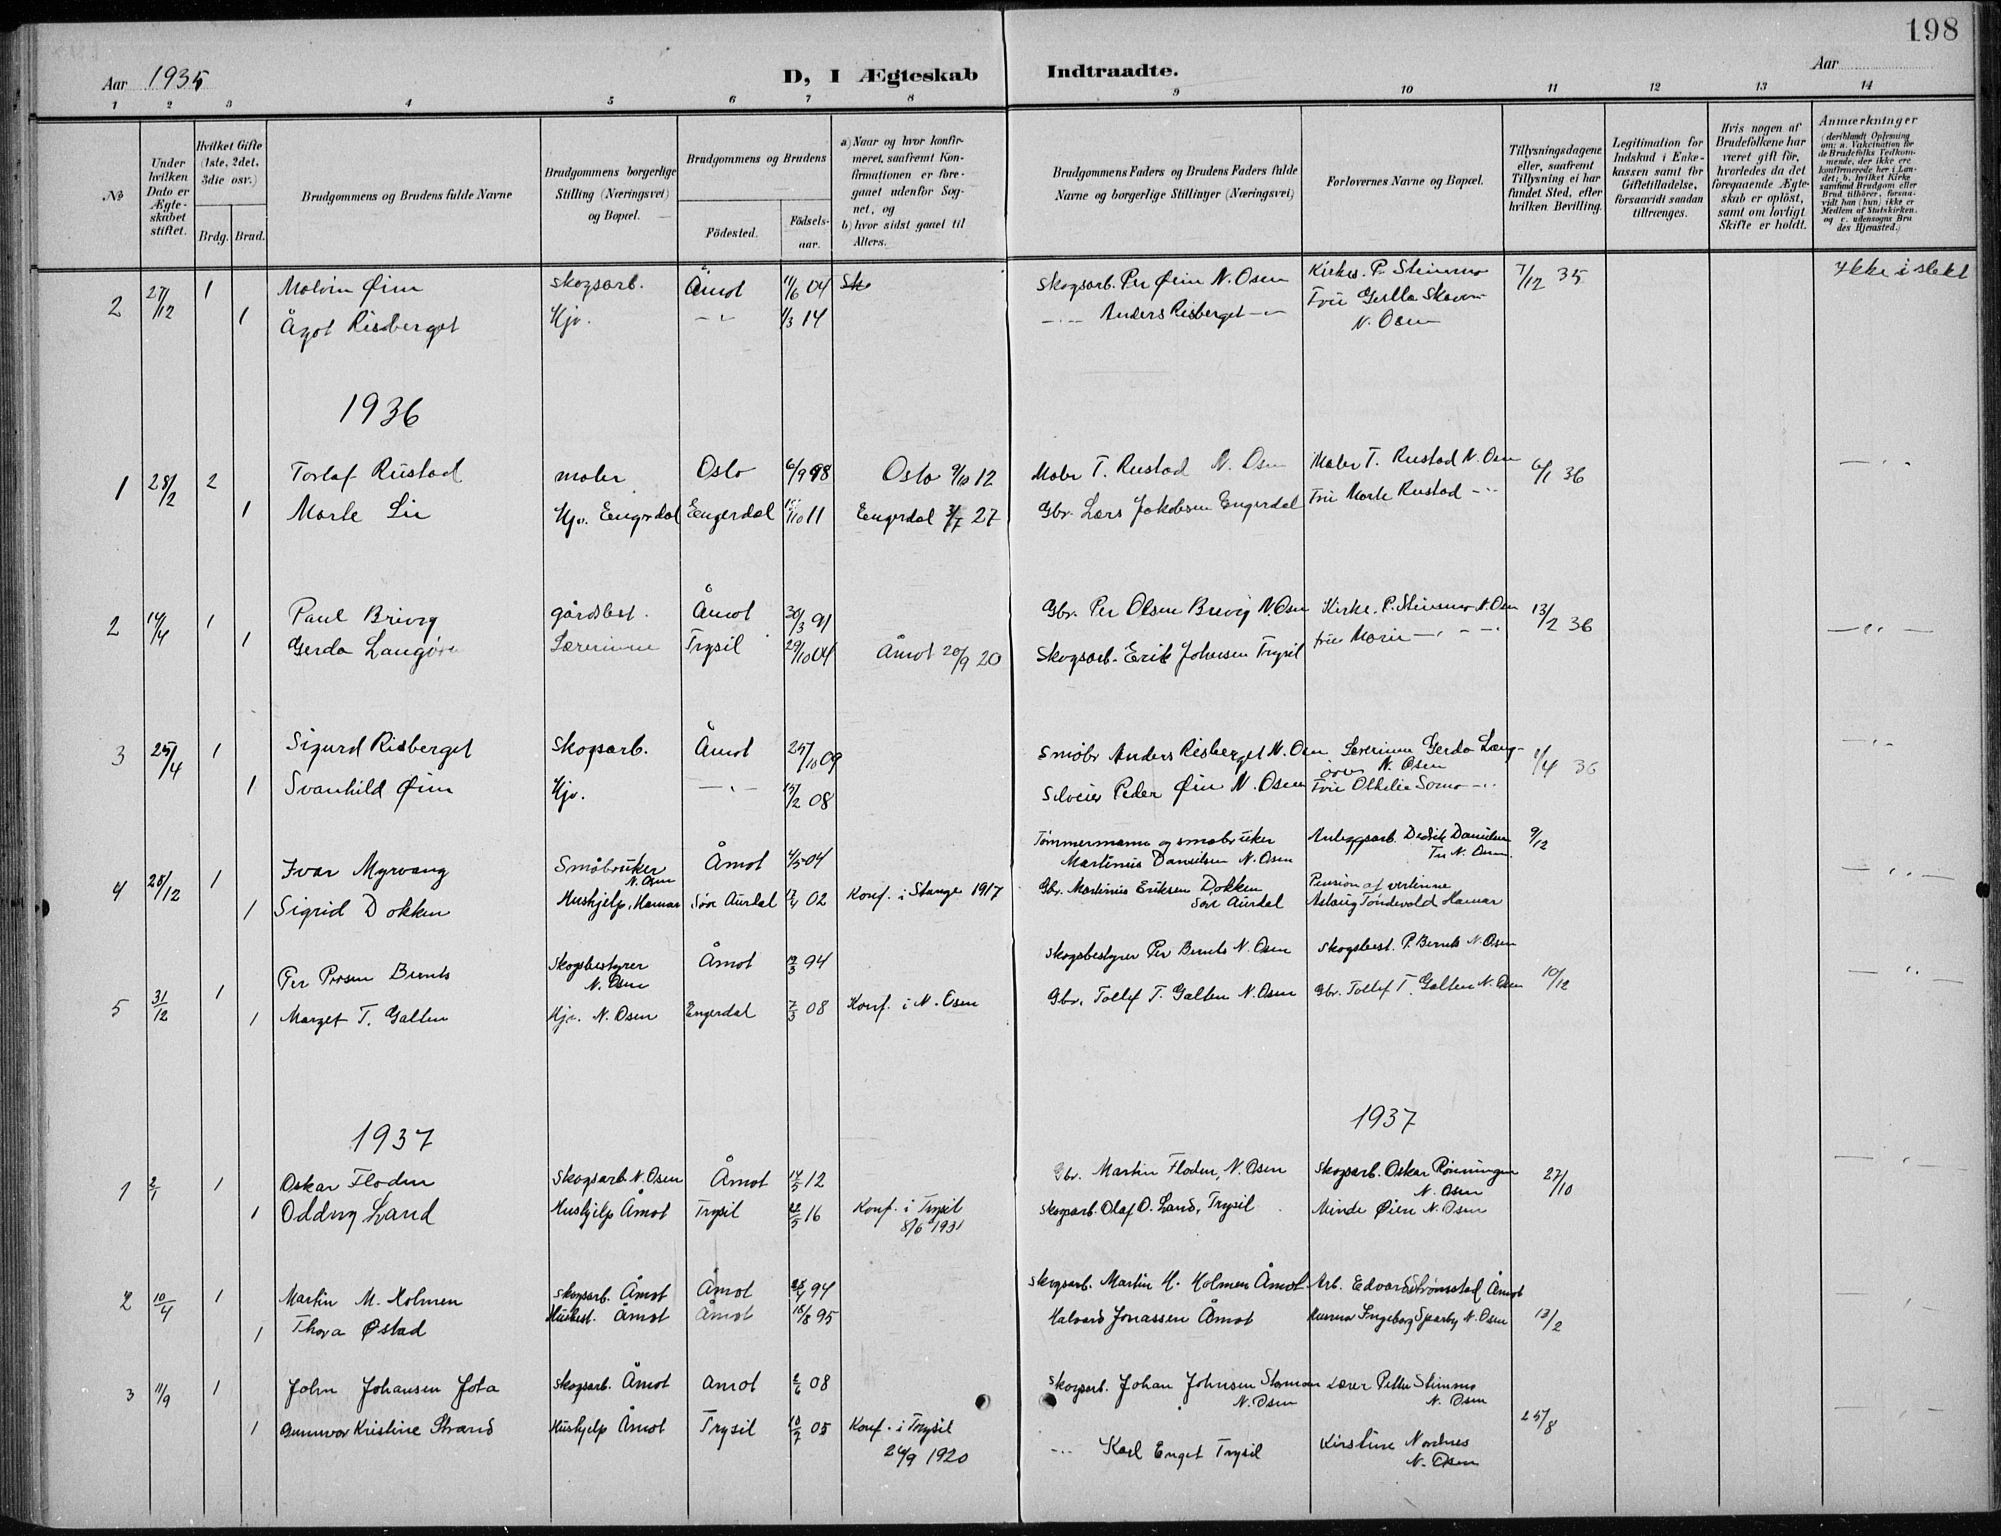 198
Aar 1935 D, I Ægteskab Indtraadte. Aar
1 2 3 4 5 6 7 8 9 10 11 12 13 14
№
Under hvilken Dato er Ægteskabet stiftet.
Hvilket Gifte (1ste, 2det, 3die osv.)
Brdg. Brud.
Brudgommens og Brudens fulde Navne
Brudgommens borgerlige Stilling (Næringsvei) og Bopæl.
Brudgommens og Brudens
Födested. Födsels-aar.
a) Naar og hvor konfirmeret, saafremt Konfirmationen er foregaaet udenfor Sognet, og
b) hvor sidst gaaet til Alters.
Brudgommens Faders og Brudens Faders fulde Navne og borgerlige Stillinger (Næringsvei)
Forlovernes Navne og Bopæl.
Tillysningsdagene eller, saafremt Tillysning ei har fundet Sted, efter hvilken Bevilling.
Legitimation for Indskud i Enkekassen samt for Giftetilladelse, forsaavidt saadan tiltrænges.
Hvis nogen af Brudefolkene har været gift för, hvorledes da det foregaaende Ægteskab er oplöst, samt om lovligt Skifte er holdt.
Anmærkninger (deriblandt Oplysning om: a. Vakcination for de Brudefolks Vedkommende, der ikke ere konfirmerede her i Landet; b. hvilket Kirkesamfund Brudgom eller Brud tilhörer, forsaavidt han (hun) ikke er Medlem af Statskirken. og c. udensogns Brudes Hjemsted.)
2 27/12 1 Malvin Øien skogsarb. Åmot 11/6 04 Skogsarb. Per Øien N. Osen Kirkes. P. Stenmo 7/12 35 Ikke i slekt
1 Ågot Risberget Hjv. —"— 1/3 14 —"— Anders Risberget —"— Fru N. Osen
1936
1 28/2 2 Torlaf Rustad maler Oslo 6/9 98 Oslo 9/10 12 Maler T. Rustad N. Osen Maler T. Rustad N. Osen 6/1 36 —"—
1 Marle Lie Hjv. Engerdal Engerdal 15/10 11 Engerdal 3/7 27 Gbr. Lars Jakobsen Engerdal Fru Marle Rustad —"—
2 14/4 1 Paul Brevig gårdsbest. Åmot 30/3 91 Gbr. Per Olsen Brevig N. Osen Kirkes. P. Stenmo N. Osen 13/2 36 —"—
1 Gerda Langøren Lærerinne Trysil 29/10 04 Åmot 20/9 20 Skogsarb. Erik Johnsen Trysil fru Marie —"—
3 25/4 1 Sigurd Risberget Skogsarb. Åmot 25/10 09 Småbr Anders Risberget N. Osen Lærerinne Gerda Langøren N. Osen 1/4 36 —"—
1 Svanhild Øien Hjv. —"— 15/2 08 Peder Øien N. Osen Fru Othelie —"—
4 28/12 1 Ivar Myrvang Småbruker N. Osen Åmot 4/5 04 Tømmermann og småbruker Martinus Danielsen N. Osen Anleggsarb. Danielsen N. Osen 9/12 —"—
1 Sigrid Dokken Hushjelp, Hamar Søre Aurdal 7/4 02 Konf. i Stange 1917 Gbr. Martinius Eriksen Dokken Søre Aurdal Pensionatvertinne Aslaug Tondevold Hamar
5 31/12 1 Per Persen Bernts Skogsbestyrer N. Osen Åmot 19/3 94 Skogsbestyrer Per Bernts N. Osen Skogsbest. P. Bernts N. Osen 10/12 —"—
1 Marget T. Galten Hjv. N. Osen Engerdal 7/3 08 Konf. i N. Osen Gbr. Tollef T. Galten N. Osen Gbr. Tollef T. Galten N. Osen
1937 1937
1 2/1 1 Oskar Floden Skogsarb. N. Osen Åmot 14/5 12 Gbr. Martin Floden, N. Osen Skogsarb. Oskar Rønningen N. Osen 27/10 —"—
1 Oddny Land Hushjelp Åmot Trysil 22/5 16 Konf. i Trysil 8/6 1931 Skogsarb. Olaf O. Land, Trysil Minda Øien N. Osen
2 10/4 1 Martin M. Holmen skogsarb. Åmot Åmot 28/4 94 Skogsarb. Martin H. Holmen Åmot Arb. Edvard Strømstad Åmot 13/2 —"—
1 Thora Østad Husbest. Åmot Åmot 18/8 95 Halvard Jonassen Åmot Ingeborg N. Osen
3 11/9 1 John Johansen Jota skogsarb. Åmot Åmot 2/6 08 Skogsarb. Johan Johnsen N. Osen Lærer Petter Stenmo N. Osen 25/8 —"—
1 Gunnvor Kristine Strand Hushjelp Åmot Trysil 10/7 05 Konf. i Trysil 26/9 1920 —"— Karl Enget Trysil Kirstine Nordnes N. Osen